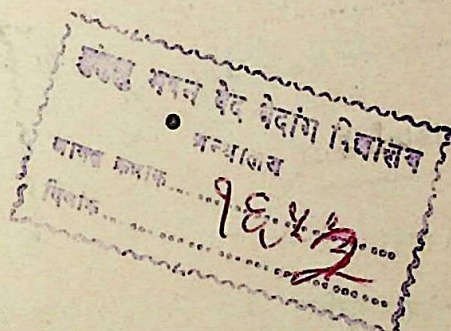 मुमुक्षु भवन वेद वेदांग विद्यालय
ग्रन्थालय
आगत क्रमांक......१६५२......
दिनांक......